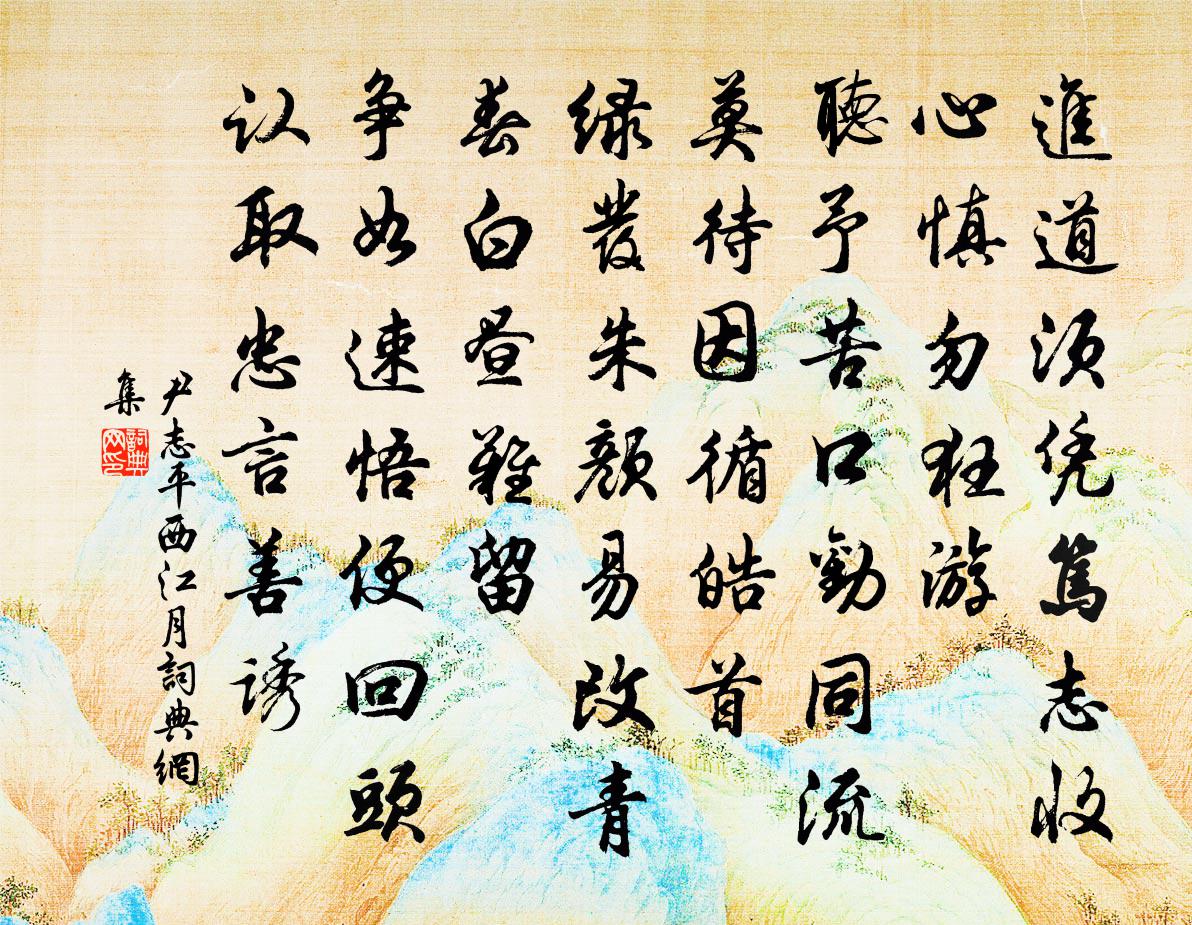 進道須凭篤志收
心慎勿狂游
聽予苦口勸同流
莫待因循皓首
绿發朱顏易改青
春白昼難留
争如速悟便回頭
认取忠言善诱
尹志平西江月詞典網
集
詞典
网印